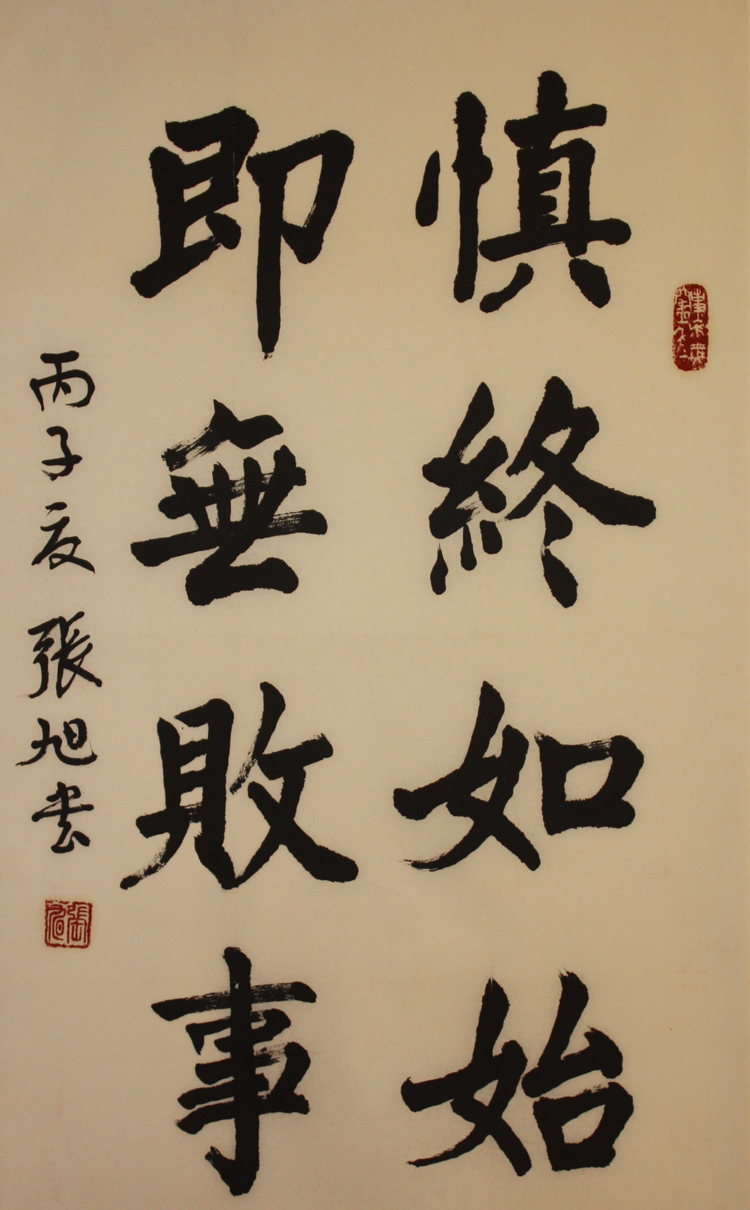 慎終如始
即無敗事
丙子夏張旭書